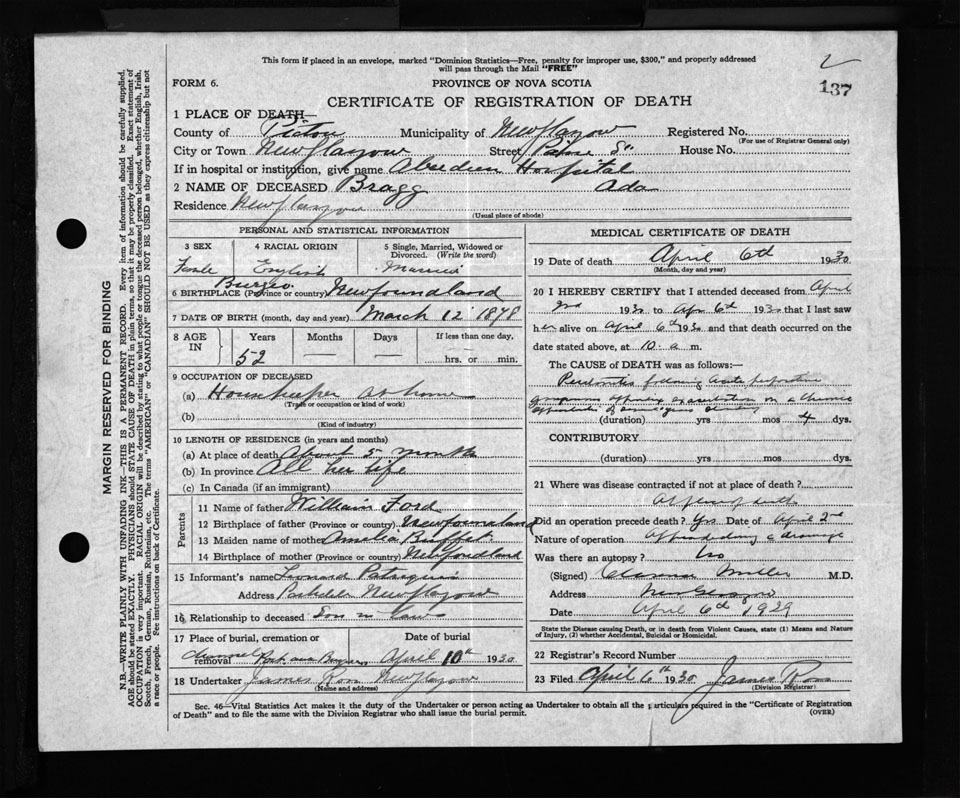 This form if placed in an envelope, marked "Dominion Statistics—Free, penalty for improper use, $300," and properly addressed
will pass through the Mail "FREE"
2
137
FORM 6. PROVINCE OF NOVA SCOTIA
CERTIFICATE OF REGISTRATION OF DEATH
1 PLACE OF DEATH—
County of Pictou Municipality of New Glasgow Registered No.
(For use of Registrar General only)
City or Town New Glasgow Street House No.
If in hospital or institution, give name Aberdeen Hospital
2 NAME OF DECEASED Bragg Ada
Residence New Glasgow
(Usual place of abode)
PERSONAL AND STATISTICAL INFORMATION
3 SEX 4 RACIAL ORIGIN 5 Single, Married, Widowed or
Divorced. (Write the word)
Female English Married
Burgeo
6 BIRTHPLACE (Province or country) Newfoundland
7 DATE OF BIRTH (month, day and year) March 12 1878
8 AGE IN Years Months Days If less than one day,
52 — — hrs. or min.
9 OCCUPATION OF DECEASED
(a) Housekeeper at home
(Trade or occupation or kind of work)
(b)
(Kind of industry)
10 LENGTH OF RESIDENCE (in years and months)
(a) At place of death About 5 months
(b) In province All her life
(c) In Canada (if an immigrant)
Parents
11 Name of father William Ford
12 Birthplace of father (Province or country) Newfoundland
13 Maiden name of mother Amelia Buffet
14 Birthplace of mother (Province or country) Newfoundland
15 Informant's name Leonard
Address New Glasgow
16 Relationship to deceased Son in law
17 Place of burial, cremation or Date of burial
removal Channel Port aux Basques April 10th 1930
18 Undertaker James Ross New Glasgow
(Name and address)
MEDICAL CERTIFICATE OF DEATH
19 Date of death April 6th 1930
(Month, day and year)
20 I HEREBY CERTIFY that I attended deceased from April
2nd 1930 to Apr 6th 1930 that I last saw
her alive on April 6th 1930 and that death occurred on the
date stated above, at 10 a m.
The CAUSE OF DEATH was as follows:—
Peritonitis following acute perforative
gangrenous on a chronic
appendicitis
(duration) yrs mos 4 dys.
CONTRIBUTORY
(duration) yrs mos dys.
21 Where was disease contracted if not at place of death?
At place of death
Did an operation precede death? Yes Date of April 2nd
Nature of operation Appendectomy & drainage
Was there an autopsy? No
(Signed) Clarence Miller M.D.
Address New Glasgow
Date April 6th 1929
State the Disease causing Death, or in death from Violent Causes, state (1) Means and Nature
of Injury, (2) whether Accidental, Suicidal or Homicidal.
22 Registrar's Record Number
23 Filed April 6th 1930 James Ross
(Division Registrar)
Sec. 46—Vital Statistics Act makes it the duty of the Undertaker or person acting as Undertaker to obtain all the particulars required in the "Certificate of Registration
of Death" and to file the same with the Division Registrar who shall issue the burial permit.
(OVER)
MARGIN RESERVED FOR BINDING
N.B.—WRITE PLAINLY WITH UNFADING INK—THIS IS A PERMANENT RECORD. Every item of information should be carefully supplied.
AGE should be stated EXACTLY. PHYSICIANS should STATE CAUSE OF DEATH in plain terms, so that it may be properly classified. Exact statement of
OCCUPATION is very important. RACIAL ORIGIN will be described by stating to what people or tongue the deceased person belonged, whether English, Irish,
Scotch, French, German, Russian, Ruthenian, etc. The terms "AMERICAN" or "CANADIAN" SHOULD NOT BE USED as they express citizenship but not
a race or people. See instructions on back of Certificate.